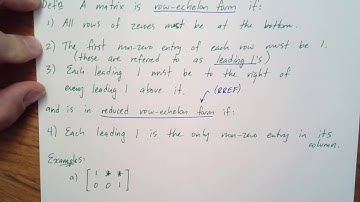 Defn: A matrix is row-echelon form if:
1) All rows of zeroes must be at the bottom.
2) The first non-zero entry of each row must be 1.
(these are referred to as leading 1's)
3) Each leading 1 must be to the right of
every leading 1 above it. (RREF)
and is in reduced row-echelon form if:
4) Each leading 1 is the only non-zero entry in its
column.
Examples:
a) [ 1 * *
0 0 1 ]